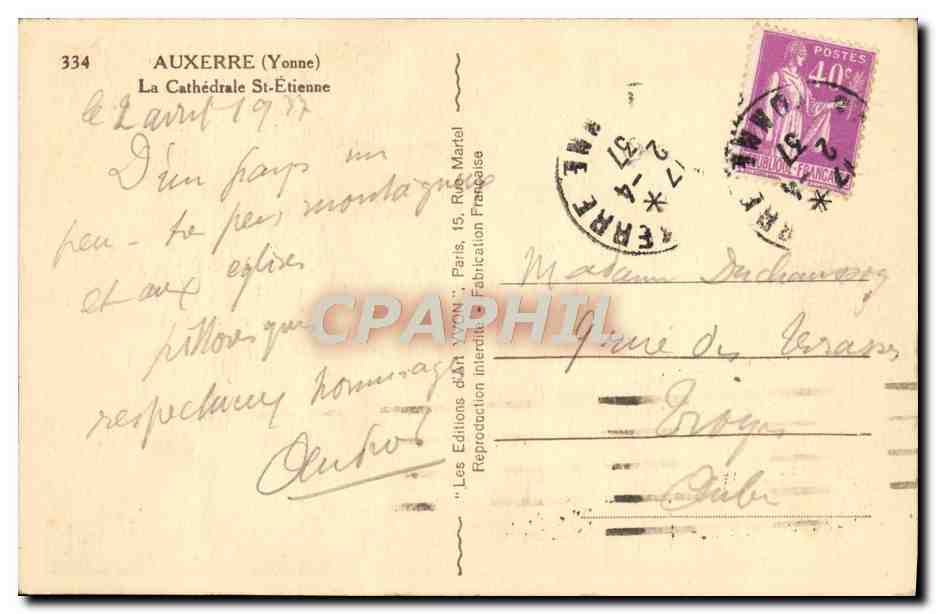 334
AUXERRE (Yonne)
La Cathédrale St-Étienne
le 2 avril 1937
D'un pays un
peu - te peu montagneux
et aux eglises
pittoresques
respectueux hommages
"Les Editions d'Art YVON", Paris, 15, Rue Martel
Reproduction interdite • Fabrication Française
POSTES
40c
REPUBLIQUE FRANCAISE
YONNE
2 -4
37
CPAPHIL
Madame Duchaussoy
rue des Terrasses
Troyes
Aube